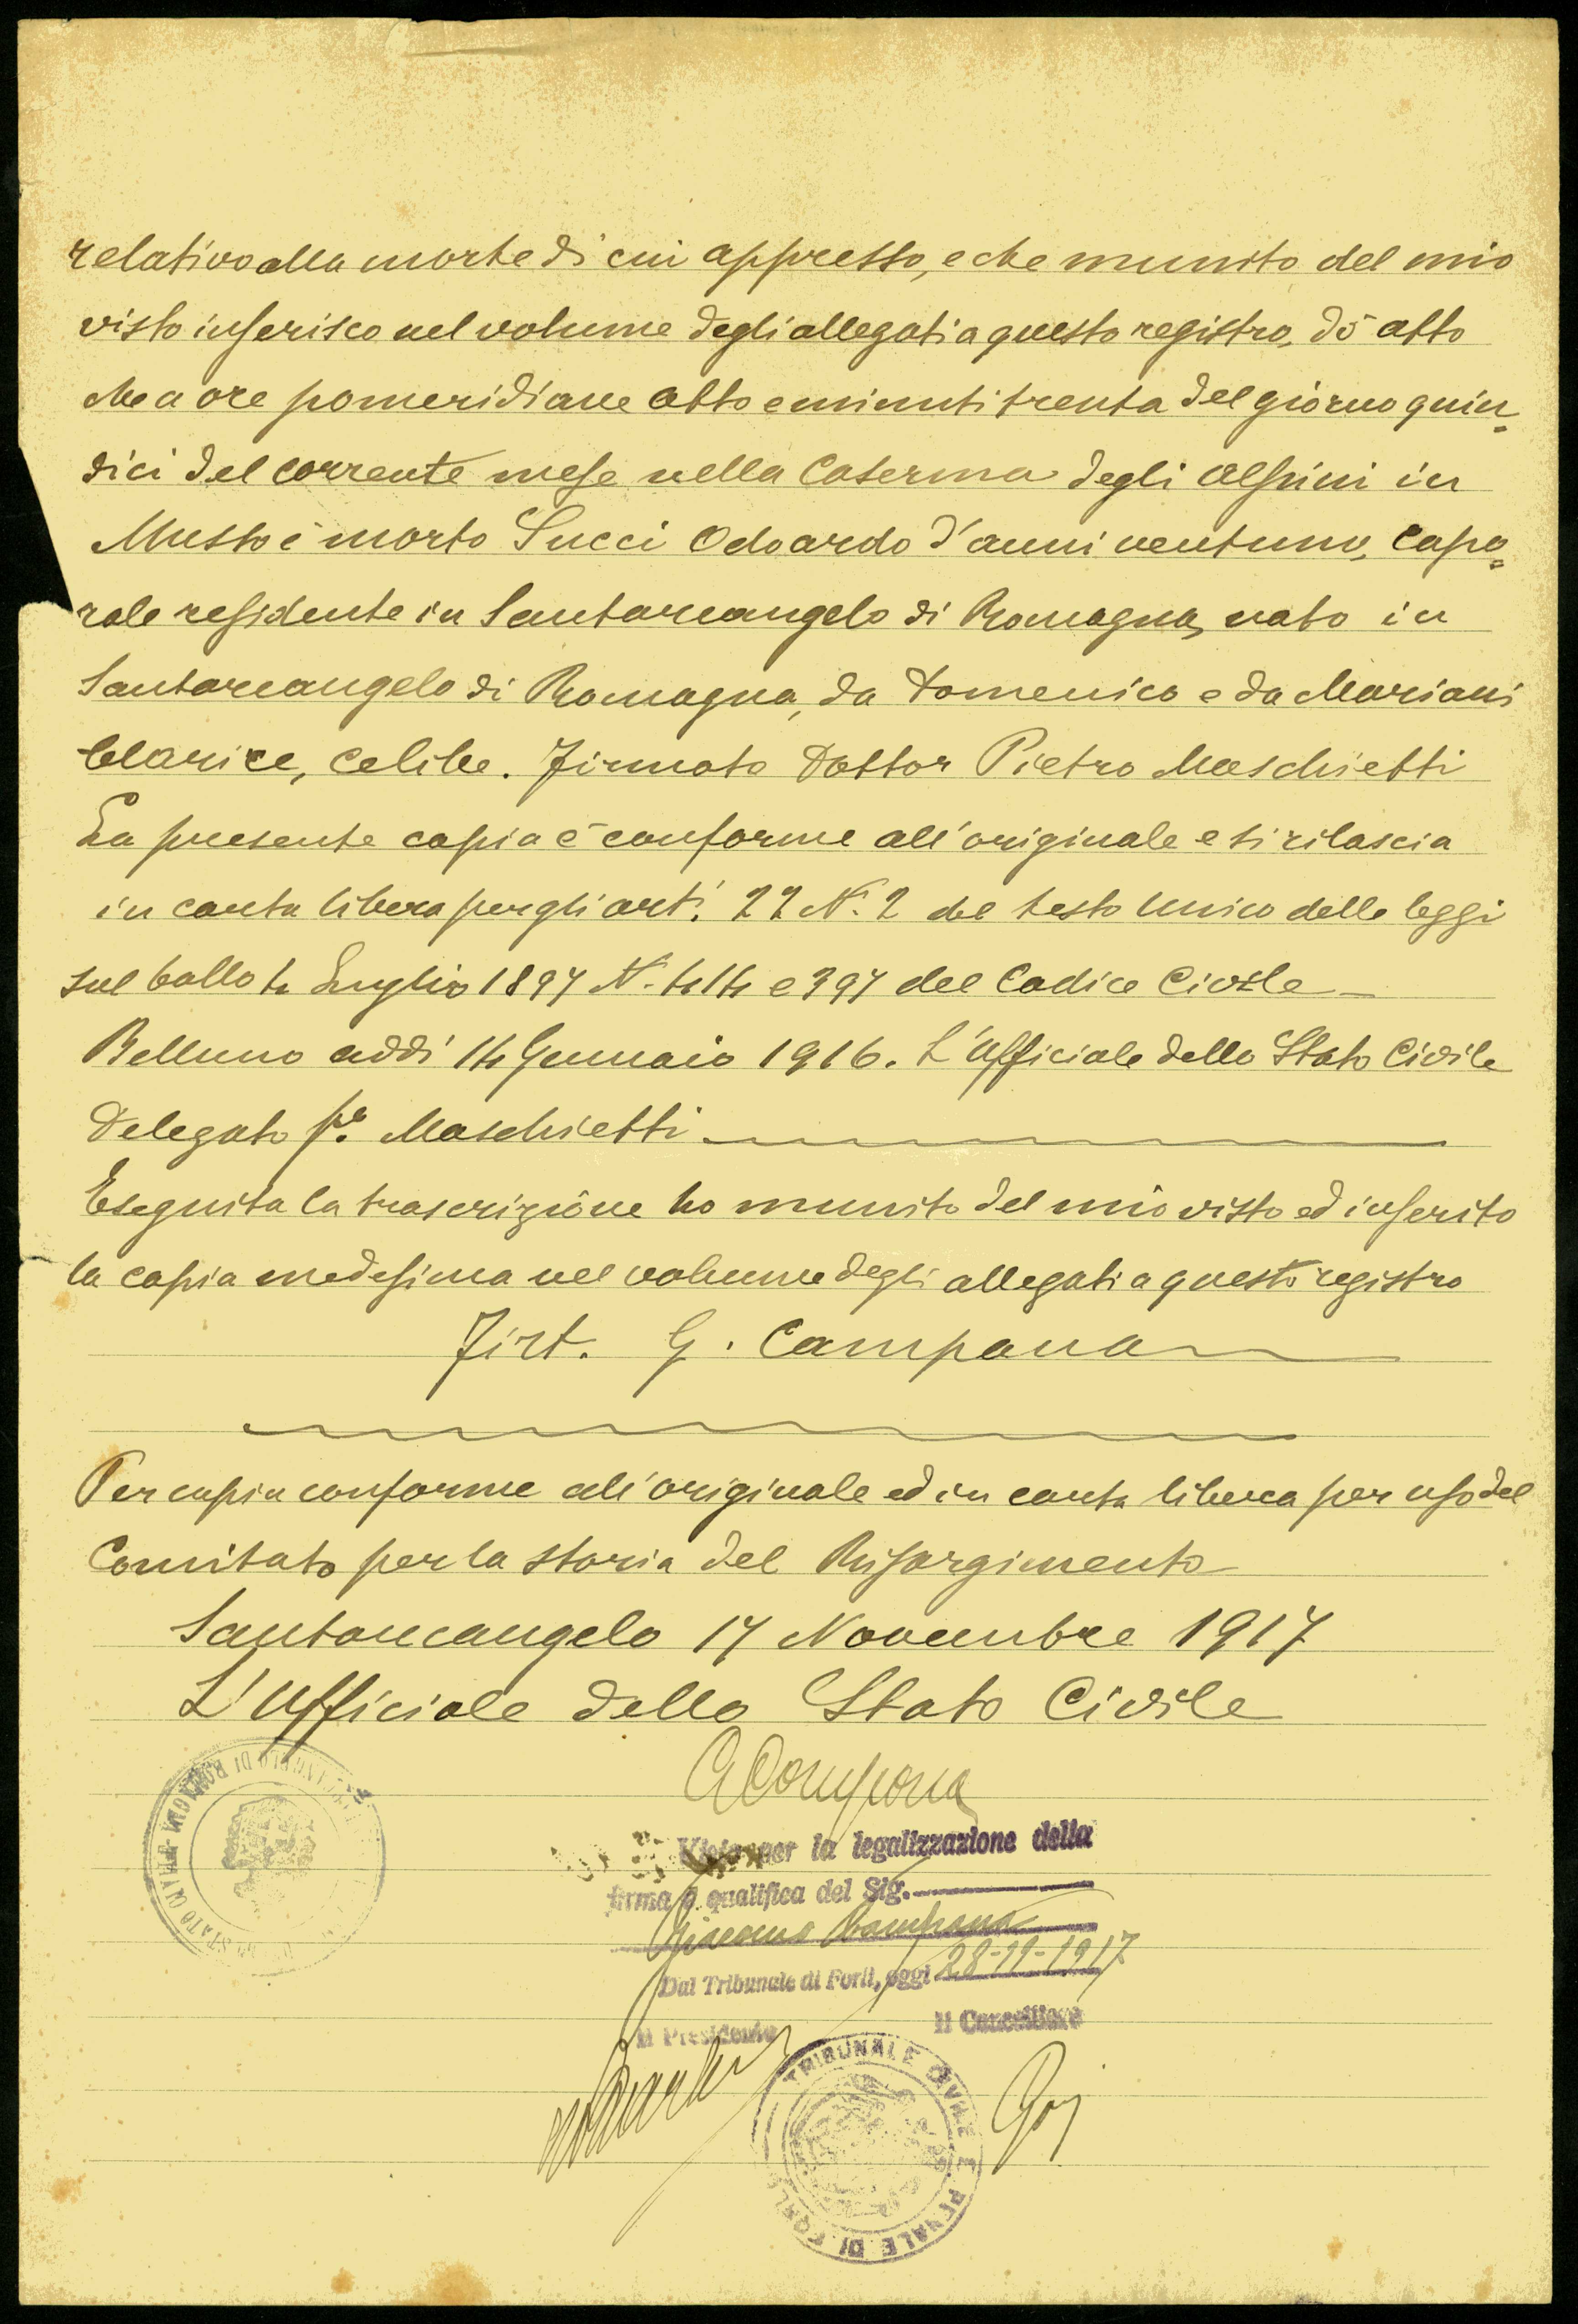 relativo alla morte di cui appresso, e che munito del mio
visto inserisco nel volume degli allegati a questo registro, dò atto
che a ore pomeridiane otto e minuti trenta del giorno quin=
dici del corrente mese nella Caserma degli Alpini in
Mussoi è morto Succi Odoardo d'anni ventuno, Capo=
rale residente in Santarcangelo di Romagna, nato in
Santarcangelo di Romagna, da Domenico e da Mariani
Clarice, celibe. Firmato Dottor Pietro Maschietti
La presente copia è conforme all'originale e si rilascia
in carta libera per gli arti. 22 N. 2 del testo Unico delle leggi
sul bollo 4 Luglio 1897 N. 414 e 397 del Codice Civile
Belluno addì 14 Gennaio 1916. L'Ufficiale dello Stato Civile
Delegato Maschietti
Eseguita la trascrizione ho munito del mio visto ed inserito
la copia medesima nel volume degli allegati a questo registro
Firt. G. Campana
Per copia conforme all'originale ed in carta libera per uso del
Comitato per la storia del Risorgimento
Santarcangelo 17 Novembre 1917
L'Ufficiale dello Stato Civile
G Campana
Visto per la legalizzazione della
firma e qualifica del Sig.
Giacomo Campana
Dal Tribunale di Forlì, oggi 28-11-1917
Il Presidente Il Cancelliere
TRIBUNALE CIVILE E PENALE DI FORLÌ